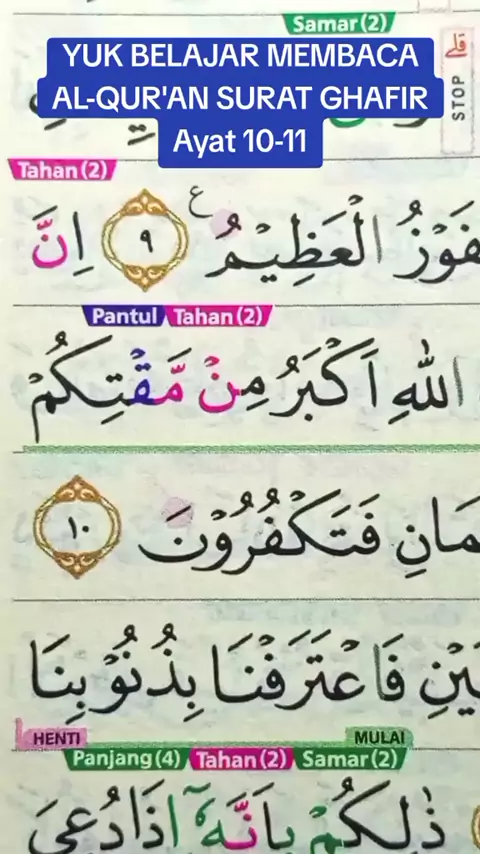 Samar (2)
قلے
STOP
YUK BELAJAR MEMBACA
AL-QUR'AN SURAT GHAFIR
Ayat 10-11
Tahan (2)
فَوْزُ الْعَظِيْمُ ࣖ ٩ اِنَّ
Pantul Tahan (2)
اللّٰهِ اَكْبَرُ مِنْ مَّقْتِكُمْ
مَانِ فَتَكْفُرُوْنَ ١٠
يْنِ فَاعْتَرَفْنَا بِذُنُوْبِنَا
HENTI MULAI
Panjang (4) Tahan (2) Samar (2)
ذٰلِكُمْ بِاَنَّهٗٓ اِذَا دُعِيَ